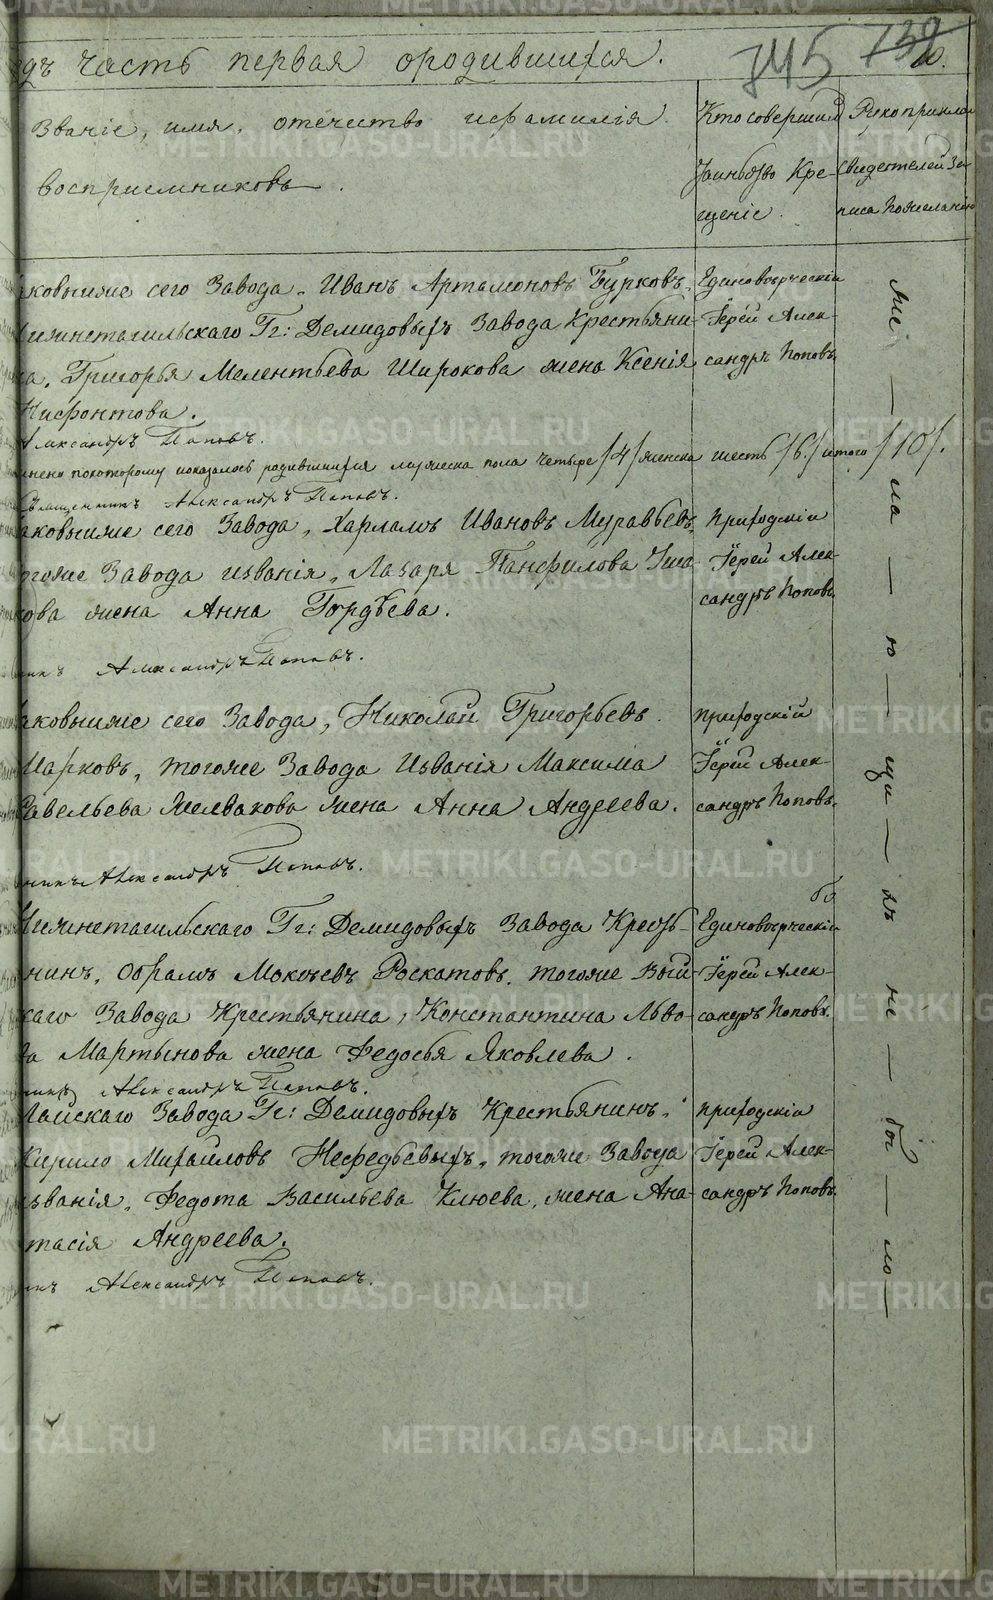 часть первая ородившихся.
745 739
Званіе, имя, отечество ифамилія
воспріемниковъ.
Кто совершилъ
таинство Кре-
щеніе.
Рукоприкла
свидетелей За
писа пожеланію
сего Завода, Иванъ Артамоновъ Бурковъ,
Нижнетагильскаго Гг: Демидовыхъ Завода Крестьяни-
на, Григорья Мелентьева Широкова жена Ксенія
Нифонтова.
Единоверческій
Іерей Алек-
сандръ Поповъ
Александръ Поповъ.
покоторому показалось родившихся мужеска пола четыре /4/ женска шесть /6/ итого /10/.
Священникъ Александръ Поповъ.
сего Завода, Харламъ Ивановъ Муравьевъ,
тогоже Завода изванія, Лазаря Панфилова
жена Анна Гордѣева.
Приходскій
Іерей Алек-
сандръ Поповъ.
Александръ Поповъ.
сего Завода, Николай Григорьевъ
Марковъ, тогоже Завода Изванія Максима
Савельева Желвакова жена Анна Андреева.
приходскій
Іерей Алек-
сандръ Поповъ.
Александръ Поповъ.
Нижнетагильскаго Гг: Демидовыхъ Завода Кресть-
нинъ, Абрамъ Роскатовъ, тогоже Вый-
скаго Завода Крестьянина, Константина Льво-
ва Мартынова жена Федосья Яковлева.
Единоверческій
Іерей Алек-
сандръ Поповъ.
Александръ Поповъ.
Лайскаго Завода Гг: Демидовыхъ Крестьянинъ,
Кирило Михайловъ Нефедьевыхъ, тогоже Завода
изванія, Федота Васильева Клюева, жена Ана-
тасія Андреева.
приходскій
Іерей Алек-
сандръ Поповъ.
Александръ Поповъ.
METRIKI.GASO-URAL.RU